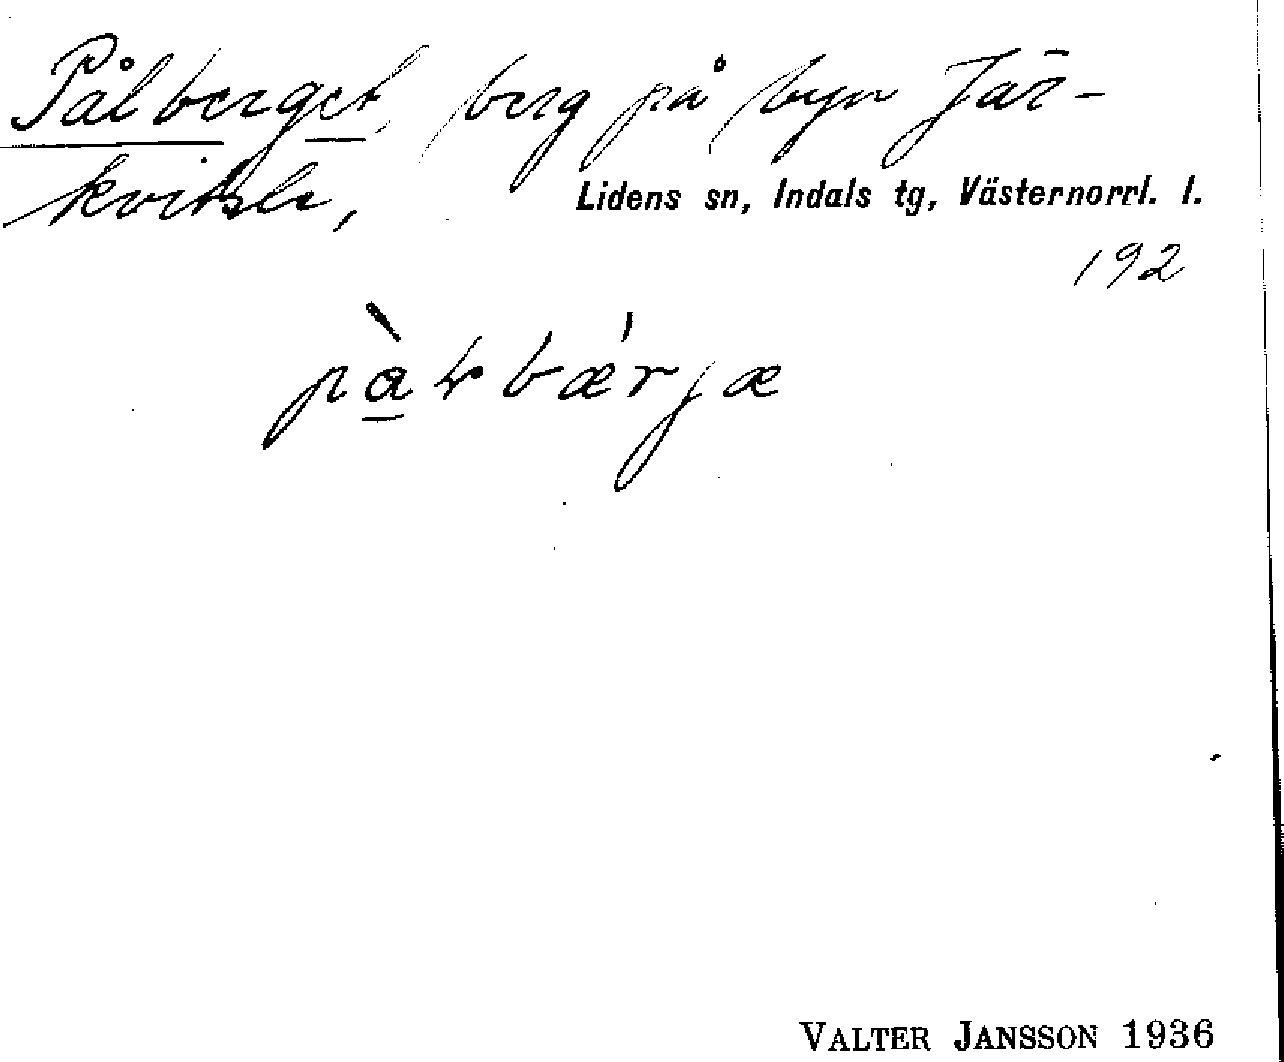 Pålberget, berg på byn Jär-
kvitsle,
Lidens sn, Indals tg, Västernorrl. l.
192
VALTER JANSSON 1936